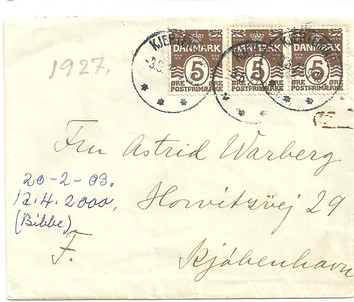 1927.
KJE
DANMARK DANMARK DANMARK
5 5 5
ØRE ØRE ØRE ØRE ØRE ØRE
POSTFRIMÆRKE POSTFRIMÆRKE POSTFRIMÆRKE
Fru Astrid Warberg
20-2-03.
12.4.2000,
Horwitzvej 29
(Bibbe)
F.
Kjøbenhavn